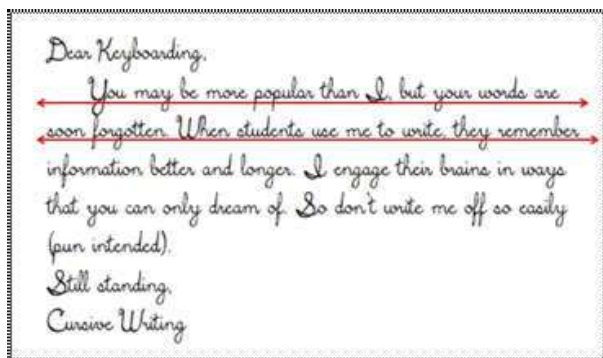 Dear Keyboarding,
You may be more popular than I, but your words are
soon forgotten. When students use me to write, they remember
information better and longer. I engage their brains in ways
that you can only dream of. So don't write me off so easily
(pun intended).
Still standing,
Cursive Writing